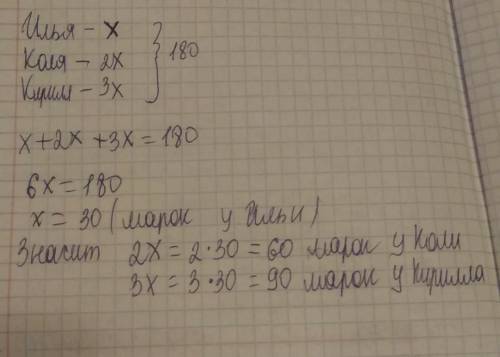 Илья – x
Коля – 2x
Кирилл – 3x
} 180
x + 2x + 3x = 180
6x = 180
x = 30 (марок у Ильи)
Значит 2x = 2·30 = 60 марок у Коли
3x = 3·30 = 90 марок у Кирилла